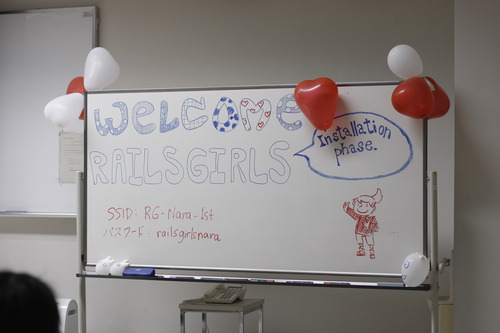 WELCOME
RAILSGIRLS
Installation
phase.
SSID: RG-Nara-1st
パスワード: railsgirlsnara